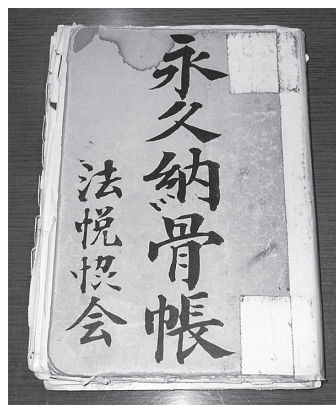 永久納骨帳
法悦恊会